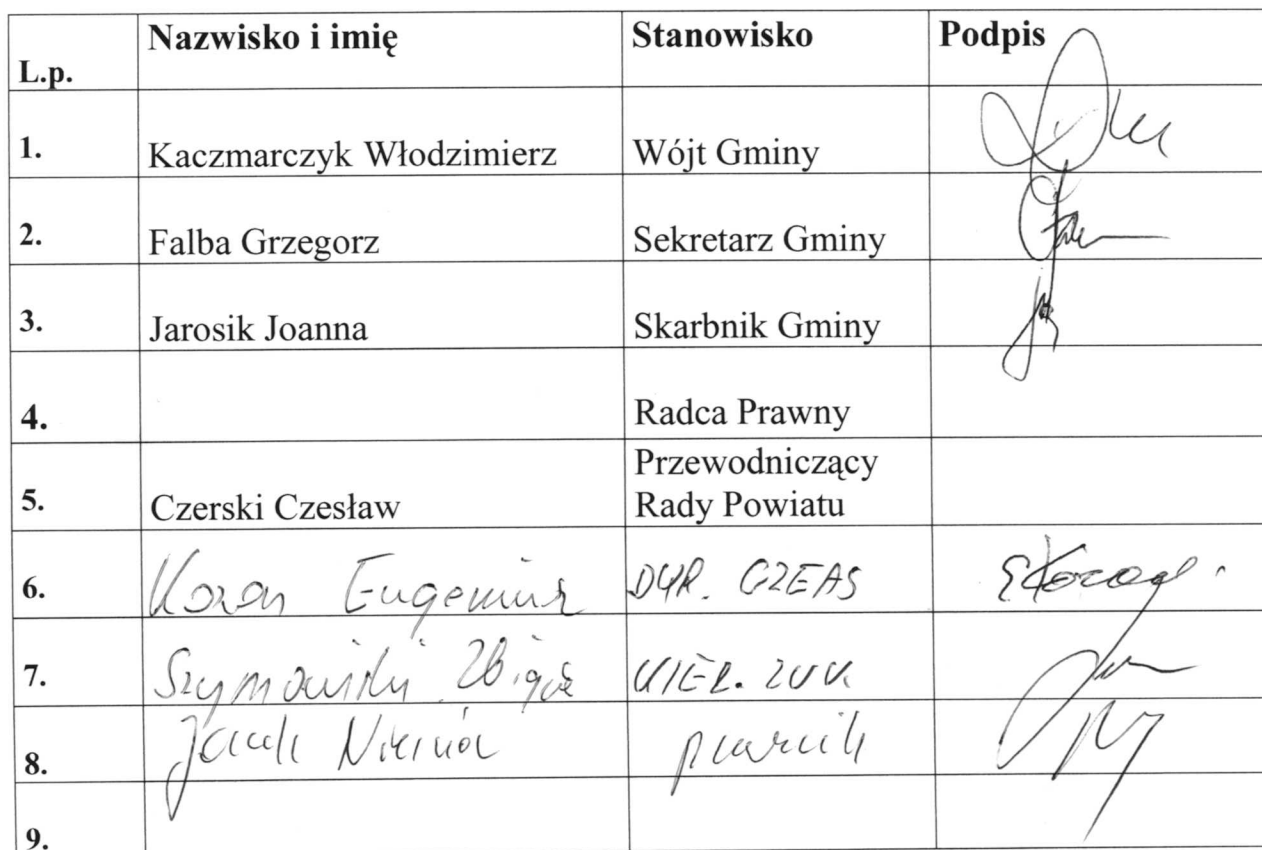 L.p. Nazwisko i imię Stanowisko Podpis
1. Kaczmarczyk Włodzimierz Wójt Gminy
2. Falba Grzegorz Sekretarz Gminy
3. Jarosik Joanna Skarbnik Gminy
4. Radca Prawny
5. Czerski Czesław Przewodniczący
Rady Powiatu
6. Kozon Eugeniusz DYR. GZEAS
7. Szymański KIER.
8. Jacek
9.